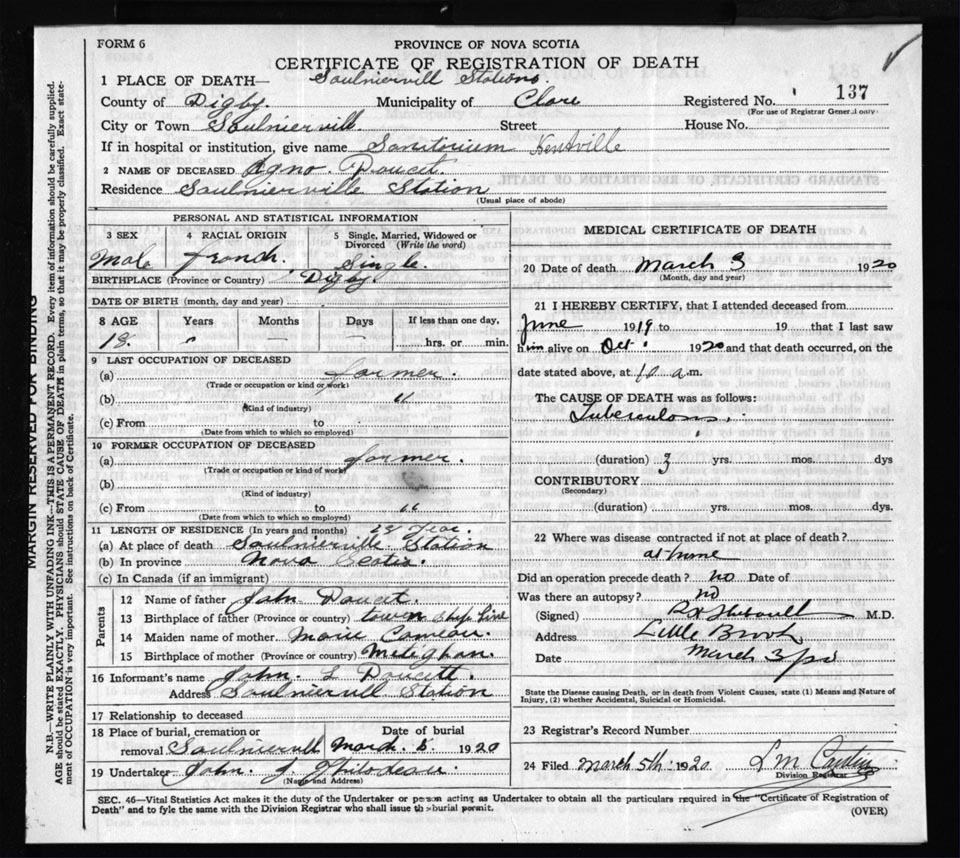 FORM 6
PROVINCE OF NOVA SCOTIA
CERTIFICATE OF REGISTRATION OF DEATH
1 PLACE OF DEATH— Saulniervill Station
County of Digby. Municipality of Clare Registered No. 137
(For use of Registrar General only)
City or Town Saulniervill. Street House No.
If in hospital or institution, give name Sanitorium Kentville
2 NAME OF DECEASED Doucet.
Residence Saulnierville Station
(Usual place of abode)
PERSONAL AND STATISTICAL INFORMATION
3 SEX 4 RACIAL ORIGIN 5 Single, Married, Widowed or Divorced (Write the word)
Male French. Single.
BIRTHPLACE (Province or Country) Digby.
DATE OF BIRTH (month, day and year)
8 AGE Years Months Days If less than one day,
18. — — hrs. or min.
9 LAST OCCUPATION OF DECEASED
(a) farmer.
(Trade or occupation or kind of work)
(b) "
(Kind of industry)
(c) From to
(Date from which to which so employed)
10 FORMER OCCUPATION OF DECEASED
(a) farmer.
(Trade or occupation or kind of work)
(b)
(Kind of industry)
(c) From to "
(Date from which to which so employed)
11 LENGTH OF RESIDENCE (In years and months)
(a) At place of death Saulnierville Station
(b) In province Nova Scotia.
(c) In Canada (if an immigrant)
Parents
12 Name of father John Doucet.
13 Birthplace of father (Province or country) town ship line
14 Maiden name of mother Marie Comeau.
15 Birthplace of mother (Province or country) Meteghan.
16 Informant's name John. L Doucett
Address Saulniervill Station
17 Relationship to deceased
18 Place of burial, cremation or removal Saulniervill Date of burial March. 5. 1920
19 Undertaker John. J. Thibodeau.
(Name and Address)
MEDICAL CERTIFICATE OF DEATH
20 Date of death March 3 1920
(Month, day and year)
21 I HEREBY CERTIFY, that I attended deceased from
June 1919 to 19 that I last saw
him alive on Oct. 1920 and that death occurred, on the
date stated above, at 10 a.m.
The CAUSE OF DEATH was as follows:
Tuberculosis.
(duration) 3 yrs. mos. dys
CONTRIBUTORY
(Secondary)
(duration) yrs. mos. dys
22 Where was disease contracted if not at place of death?
at home
Did an operation precede death? no Date of
Was there an autopsy? no
(Signed) M.D.
Address Little Brook
Date March 3
State the Disease causing Death, or in death from Violent Causes, state (1) Means and Nature of Injury, (2) whether Accidental, Suicidal or Homicidal.
23 Registrar's Record Number
24 Filed March 5th 1920 L M
Division Registrar
SEC. 46—Vital Statistics Act makes it the duty of the Undertaker or person acting as Undertaker to obtain all the particulars required in the "Certificate of Registration of
Death" and to fyle the same with the Division Registrar who shall issue the burial permit.
(OVER)
MARGIN RESERVED FOR BINDING
N.B.—WRITE PLAINLY WITH UNFADING INK—THIS IS A PERMANENT RECORD. Every item of information should be carefully supplied.
AGE should be stated EXACTLY. PHYSICIANS should STATE CAUSE OF DEATH in plain terms, so that it may be properly classified. Exact statement of OCCUPATION is very important. See instructions on back of Certificate.